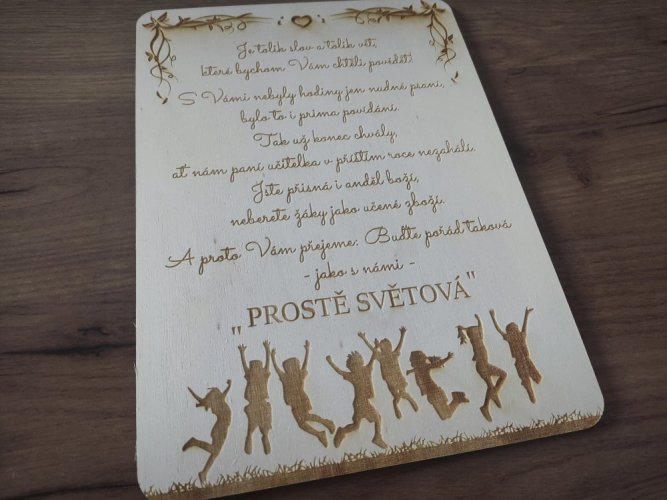 Je tolik slov a tolik vět,
které bychom Vám chtěli povědět!
S Vámi nebyly hodiny jen nudné psaní,
bylo to i prima povídání.
Tak už konec chvály,
ať nám paní učitelka v příštím roce nezahálí.
Jste přísná i anděl boží,
neberete žáky jako učené zboží.
A proto Vám přejeme: Buďte pořád taková
- jako s námi -
„ PROSTĚ SVĚTOVÁ"